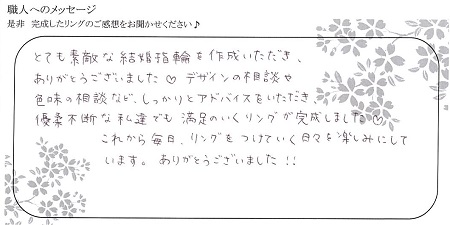 職人へのメッセージ
是非 完成したリングのご感想をお聞かせください♪
とても素敵な結婚指輪を作成いただき、
ありがとうございました♡ デザインの相談や
色味の相談など、しっかりとアドバイスをいただき、
優柔不断な私達でも満足のいくリングが完成しました♡
これから毎日、リングをつけていく日々を楽しみにして
います。ありがとうございました!!